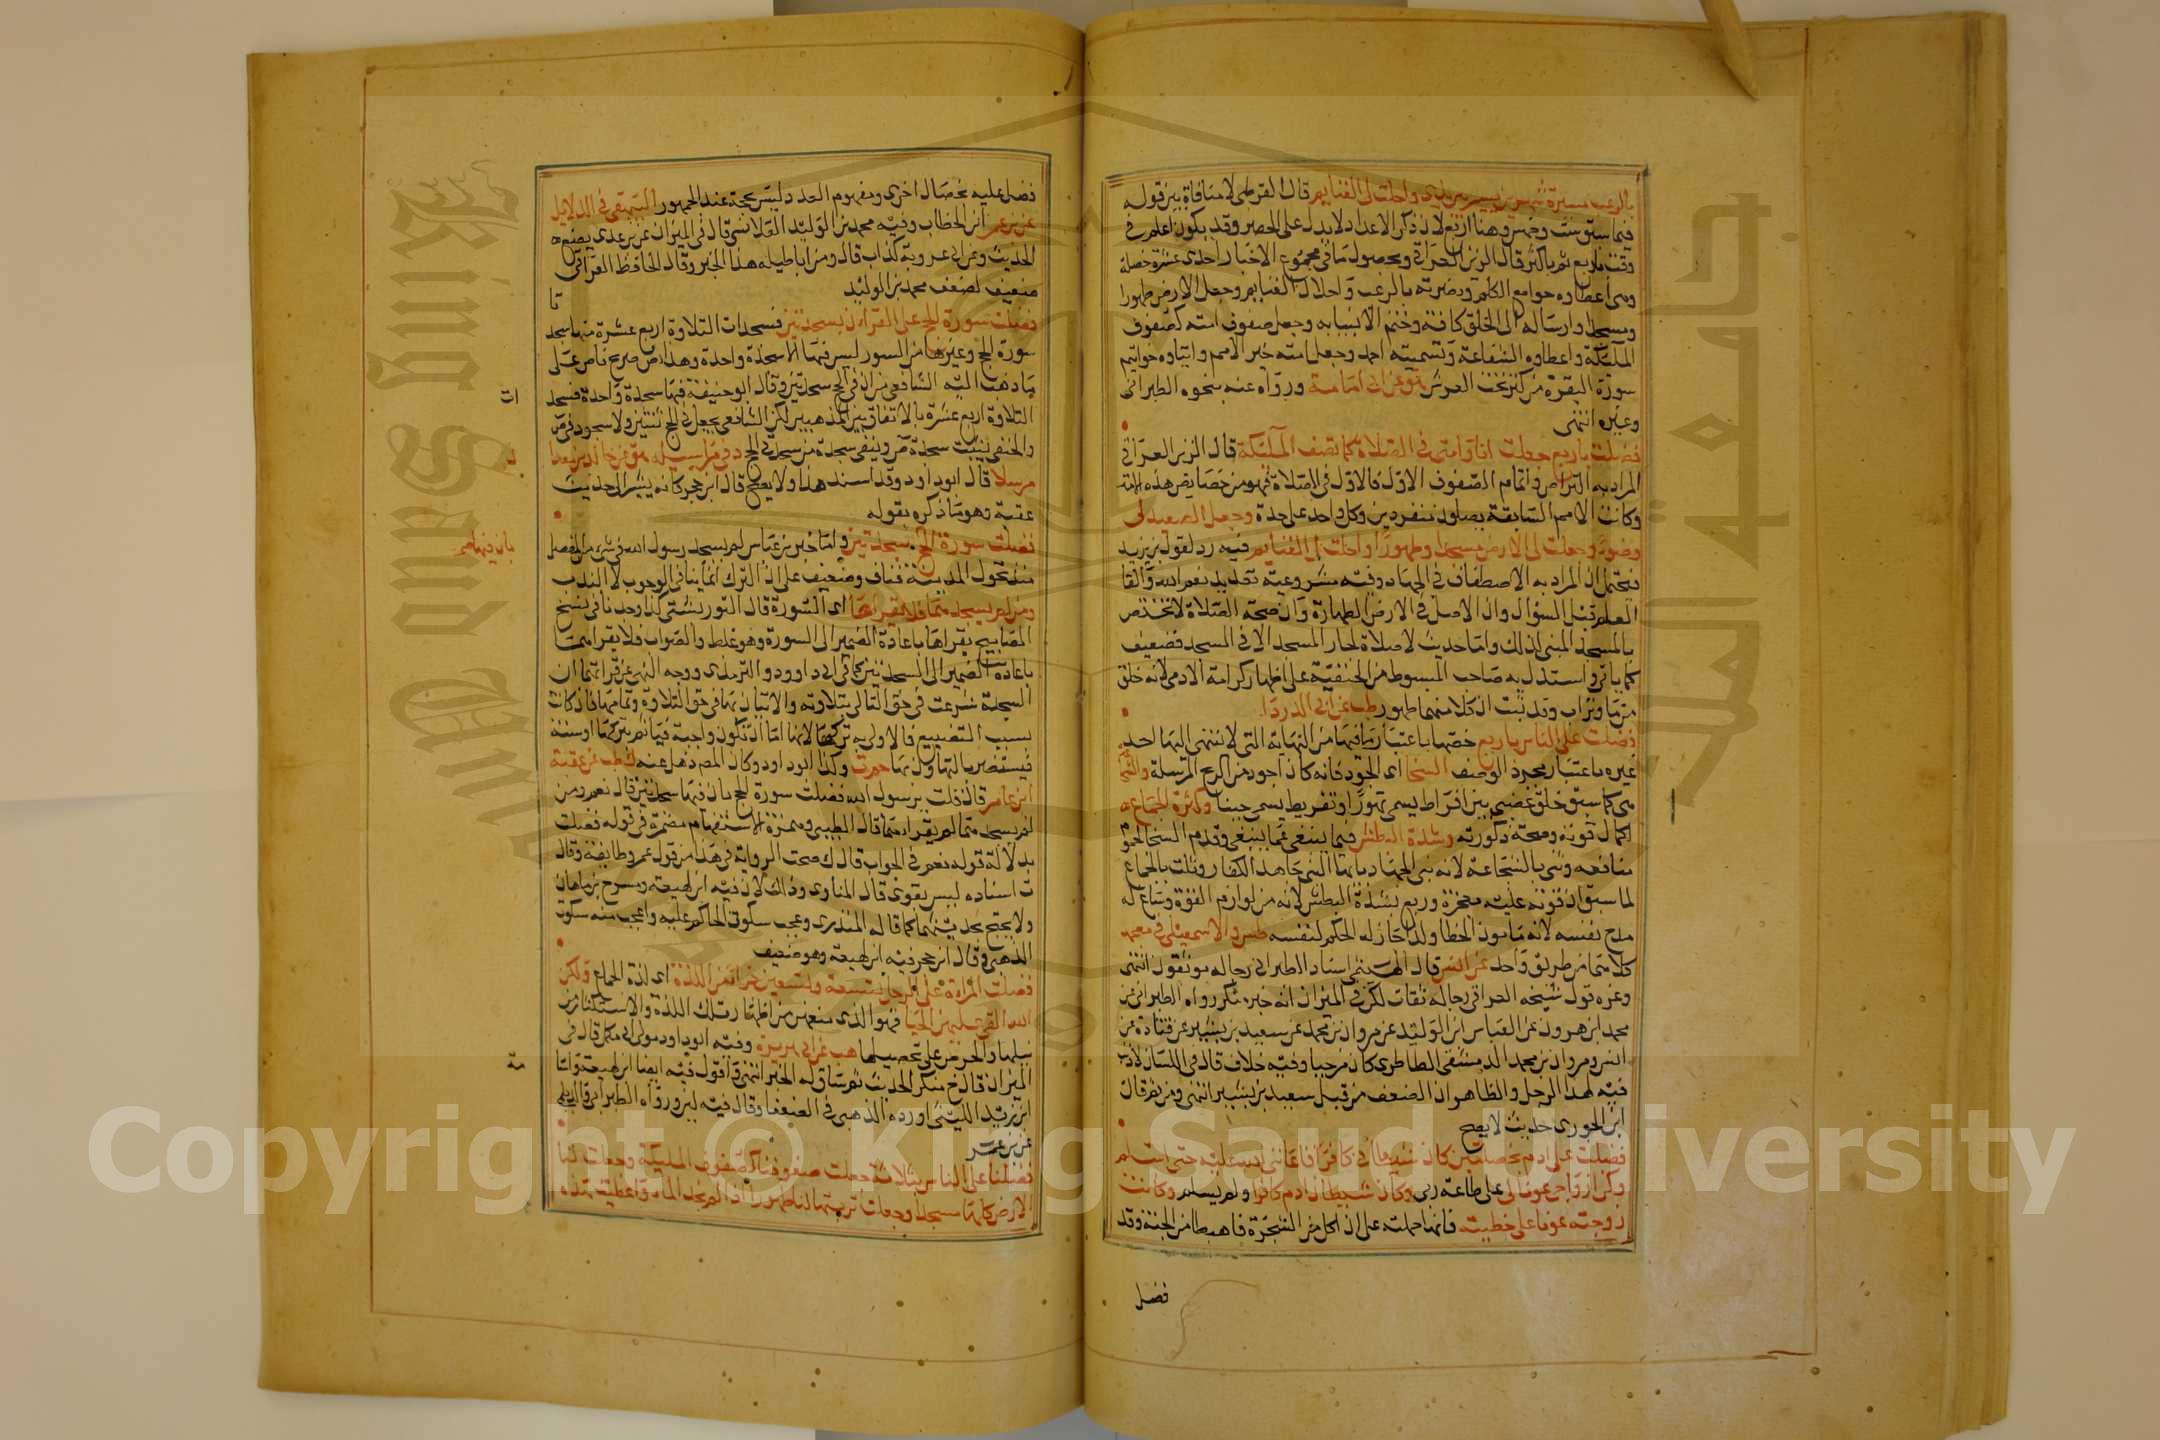 بالرعب مسيرة شهر من بين يدي واحلت لي الغنايم قال القرطبي لا منافاة بين قوله
فيما سبق ست وخمس وهنا اربع لان ذكر الاعداد لا يدل على الحصر وقد يكون اعلم في
وقت باربع ثم باكثر قال الزين العراقي ويحصل مما في مجموع الاخبار احدى عشرة خصلة
وهي اعطاوه جوامع الكلم ونصرته بالرعب واحلال الغنايم وجعل الارض طهورا
ومسجدا وارساله الى الخلق كافة وختم الانبيا به وجعل صفوف امته كصفوف
المليكة واعطاوه الشفاعة وتسميته احمد وجعل امته خير الامم وايتاوه خواتيم
سورة البقرة من كنز تحت العرش هق عن ابي امامة ورواه عنه بنحوه الطبراني
وغيره انتهى
فضلت باربع جعلت انا وامتي في الصلاة كما تصف المليكة قال الزين العراقي
المراد به التراص واتمام الصفوف الاول فالاول في الصلاة فهو من خصايص هذه الامة
وكانت الامم السابقة يصلون منفردين وكل واحد على حدة وجعل الصعيد لي
وضوءا وجعلت لي الارض مسجدا وطهورا واحلت لي الغنايم فيه رد لقول بريزيد
فيحتمل ان المراد به الاصطفاف في الجهاد وفيه مشروعية تعديد نعم الله والقا
العلم قبل السؤال وان الاصل في الارض الطهارة وان صحة الصلاة لا تختص
بالمسجد المبني لذلك واما حديث لا صلاة لجار المسجد الا في المسجد فضعيف
كما ياتي واستدل به صاحب المبسوط من الحنفية على اظهار كرامة الادمي لانه خلق
من ما وتراب وقد ثبت ان كلا منهما طهور طب عن ابي الدردا
فضلت على الناس باربع خصها باعتبار ما فيها من النهاية التي لا ينتهي اليها احد
غيره باعتبار مجرد الوصف السخا اي الجود فانه كان اجود من الريح المرسلة والشجاعة
هي كما سبق خلق غضبي بين افراط يسمى تهورا وتفريط يسمى جبنا وكثرة الجماع
لكمال قوته وصحة ذكورته وشدة البطش فيما ينبغي على ما ينبغي وقدم السخا لجموم
منافعه وثنى بالشجاعة لانه نبي الجهاد يايها النبي جاهد الكفار وثلث بالجماع
لما سبق ان قوته عليه معجزة وربع بشدة البطش لانه من لوازم القوة وشاع له
مدح نفسه لانه مامون الخطا ولذا جاز له الحكم لنفسه طس والاسمعيلي في معجمه
كلاهما من طريق واحد عن انس قال الهيثمي اسناد الطبراني رجاله موثقون انتهى
وغره قول شيخه العراقي رجاله ثقات لكن في الميزان انه خبر منكر رواه الطبراني عن
محمد ابن هرون عن العباس ابن الوليد عن مروان بن محمد عن سعيد بن بشير عن قتادة عن
انس ومروان بن محمد الدمشقي الطاطري كان مرجيا وفيه خلاف قال في اللسان لا ذنب
فيه لهذا الرجل والظاهر ان الضعف من قبل سعيد بن بشير انتهى ومن ثم قال
ابن الجوزي حديث لا يصح
فضلت على ادم بخصلتين كان شيطاني كافرا فاعانني الله عليه حتى اسلم
وكن ازواجي عونا لي على طاعة ربي وكان شيطان ادم كافرا ولم يسلم وكانت
زوجته عونا على خطيئته فانها حملته على ان اكل من الشجرة فاهبطا من الجنة وقد
فضل
فضل عليه بخصال اخرى ومفهوم العدد ليس بحجة عند الجمهور البيهقي في الدلايل
عن ابن عمر ابن الخطاب وفيه محمد بن الوليد القلانسي قال في الميزان عن ابن عدي يضع
الحديث وعن ابي عروبة كذاب قال ومن اباطيله هذا الخبر وقال الحافظ العراقي
ضعيف لضعف محمد بن الوليد
فضلت سورة الحج على القران بسجدتين فسجدات التلاوة اربع عشرة منها سجدتا
سورة الحج وغيرها من السور ليس فيها الا سجدة واحدة وهذا نص صريح ناص على
ما ذهب اليه الشافعي من ان في الحج سجدتين وقال ابو حنيفة فيها سجدة واحدة فسجدات
التلاوة اربع عشرة بالاتفاق بين المذهبين لكن الشافعي يجعل في الحج ثنتين ولا سجود في ص
والحنفي يثبت سجدة ص وينفي سجدة من سجدتي الحج د في مراسيله هق عن خالد بن معدان
مرسلا قال ابو داود وقد اسند هذا ولا يصح قال ابن حجر كانه يشير الى حديث
عقبة وهو ما ذكره بقوله
فضلت سورة الحج بان فيها سجدتين واما خبر ابن عباس لم يسجد رسول الله في شيء من المفصل
منذ تحول المدينة فناف وضعيف على ان الترك انما ينافي الوجوب لا الندب
ومن لم يسجدهما فلا يقراها اي السورة قال التوربشتي كذا وجدنا في نسخ
المصابيح يقراها باعادة الضمير الى السورة وهو غلط والصواب فلا يقراهما
باعادة الضمير الى السجدتين كما في ابي داوود والترمذي ووجه النهي عن قراتهما ان
السجدة شرعت في حق التالي بتلاوته والاتيان بها في حق التلاوة وتمامها فاذا كانت
بسبب التضييع فالاولى به تركها لانها اما ان تكون واجبة فياثم بتركها او سنة
فيستضر بالتهاون بها حم ت وكذا ابو داود وكان المص ذهل عنه ك طب عن عقبة
ابن عامر قال قلت يرسول الله فضلت سورة الحج بان فيها سجدتين قال نعم ومن
لم يسجدهما لم يقراهما قال الطيبي وهمزة الاستفهام مضمرة في قوله فضلت
بدلالة قوله نعم في الجواب قال ك صحت الرواية في هذا من قول عمر وطايفة وقال
ت اسناده ليس بقوي قال المناوي وذلك لان فيه ابن لهيعة ومسرح بن هاعان
ولا يحتج بحديثهما كما قاله المنذري وعجب سكوت الحاكم عليه واعجب منه سكوت
الذهبي وقال ابن حجر فيه ابن لهيعة وهو ضعيف
فضلت المراة على الرجل بتسعة وتسعين جزا من اللذة اي لذة الجماع ولكن
الله القى عليهن الحيا فهو الذي منعهن من اظهار تلك اللذة والاستكثار من
نيلها والحرص على تحصيلها هب عن ابي هريرة وفيه ابو داود مولى ابي مكمل قال في
الميزان قال خ منكر الحديث ثم ساق له الخبر انتهى واقول فيه ايضا ابن لهيعة واسامة
ابن زيد الليثي اورده الذهبي في الضعفا وقال فيه لين ورواه الطبراني والديلمي
عن ابن عمر
فضلنا على الناس بثلاث جعلت صفوفنا كصفوف المليكة وجعلت لنا
الارض كلها مسجدا وجعلت تربتها لنا طهورا اذا لم نجد الماء واعطيت هذه
بان فيها
Copyright © King Saud University
King Saud University
جامعة الملك سعود